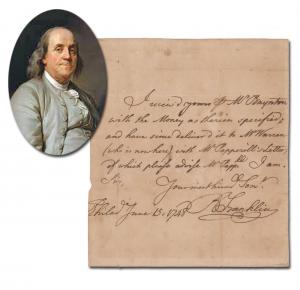 I receiv'd yours p Mr Baynton
with the Money as therein specified;
and have since deliver'd it to Mr Warren
(who is now here) with Mr Pepperill's Letter,
of which please advise Mr I am
Sir,
Your most hum Serv
Philad June 15. 1748 B Franklin